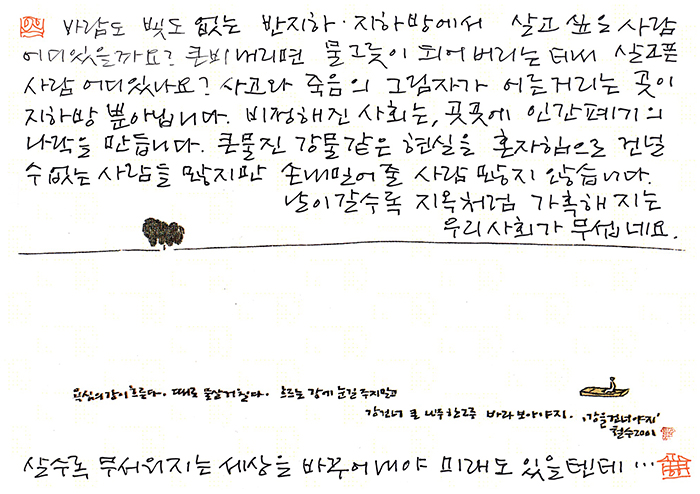 바람도 빛도 없는 반지하·지하방에서 살고 싶은 사람
어디있을까요? 큰비 내리면 물그릇이 되어버리는 터에 살고픈
사람 어디있나요? 사고와 죽음의 그림자가 어른거리는 곳이
지하방 뿐아닙니다. 비정해진 사회는, 곳곳에 인간폐기의
나락을 만듭니다. 큰물진 강물같은 현실을 혼자힘으로 건널
수없는 사람들 많지만 손내밀어줄 사람 많지 않습니다.
날이갈수록 지옥처럼 가혹해지는
우리사회가 무섭네요.
욕심의강이흐른다. 때로 물살거칠다. 흐르는강에 눈길주지말고
강건너 큰 나무 한그루 바라보아야지. '강을건너야지'
철수2001
살수록 무서워지는 세상을 바꾸어내야 미래도 있을텐데…